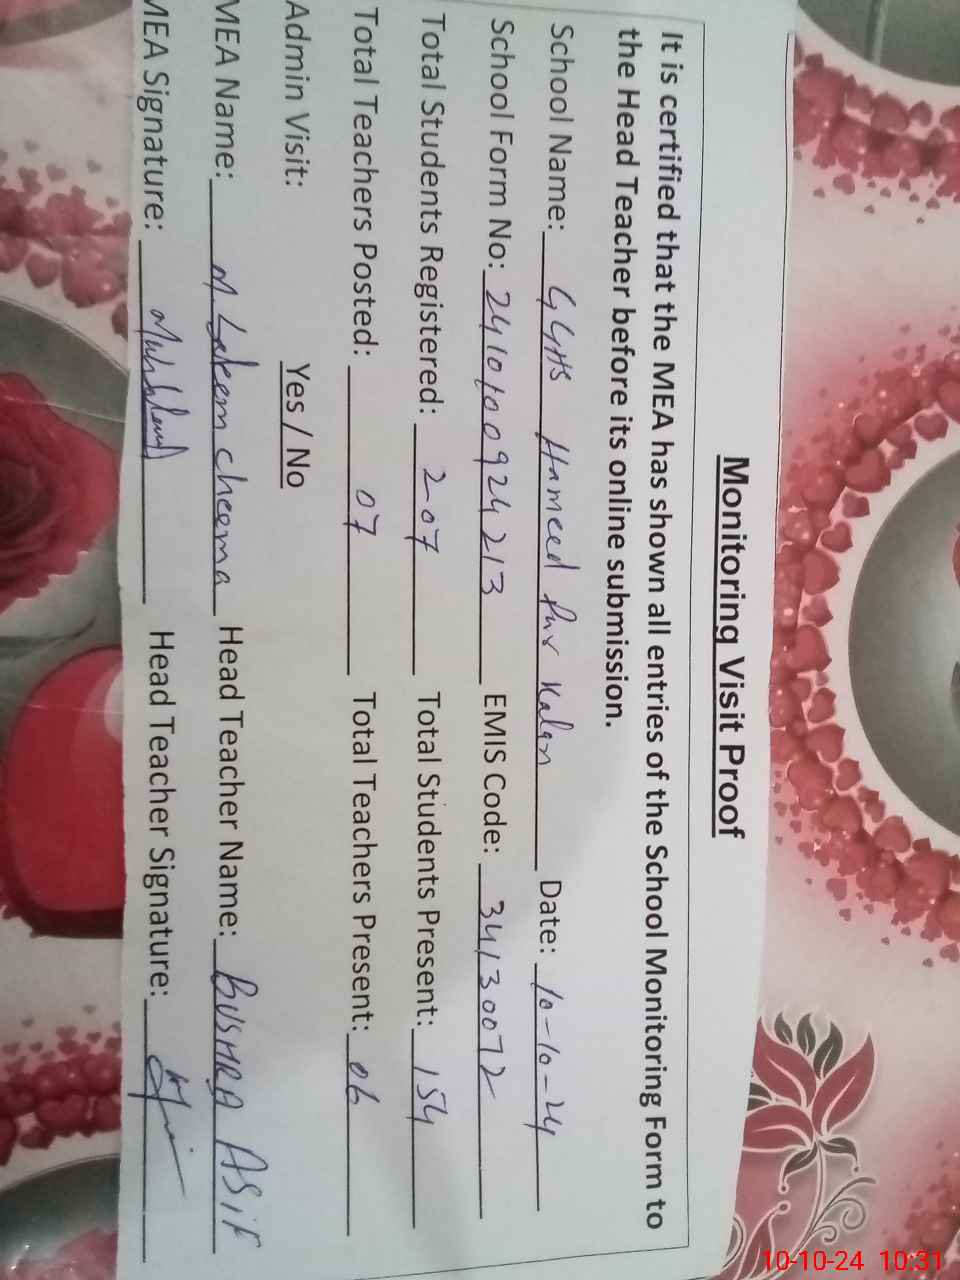 Monitoring Visit Proof
It is certified that the MEA has shown all entries of the School Monitoring Form to
the Head Teacher before its online submission.
School Name: GGHS Hameed Pur Kalan Date: 10-10-24
School Form No: 2410100924213 EMIS Code: 34130072
Total Students Registered: 207 Total Students Present: 154
Total Teachers Posted: 07 Total Teachers Present: 06
Admin Visit: Yes / No
MEA Name: M. Cheema Head Teacher Name: BUSHRA ASIF
MEA Signature: Head Teacher Signature:
10-10-24 10:31